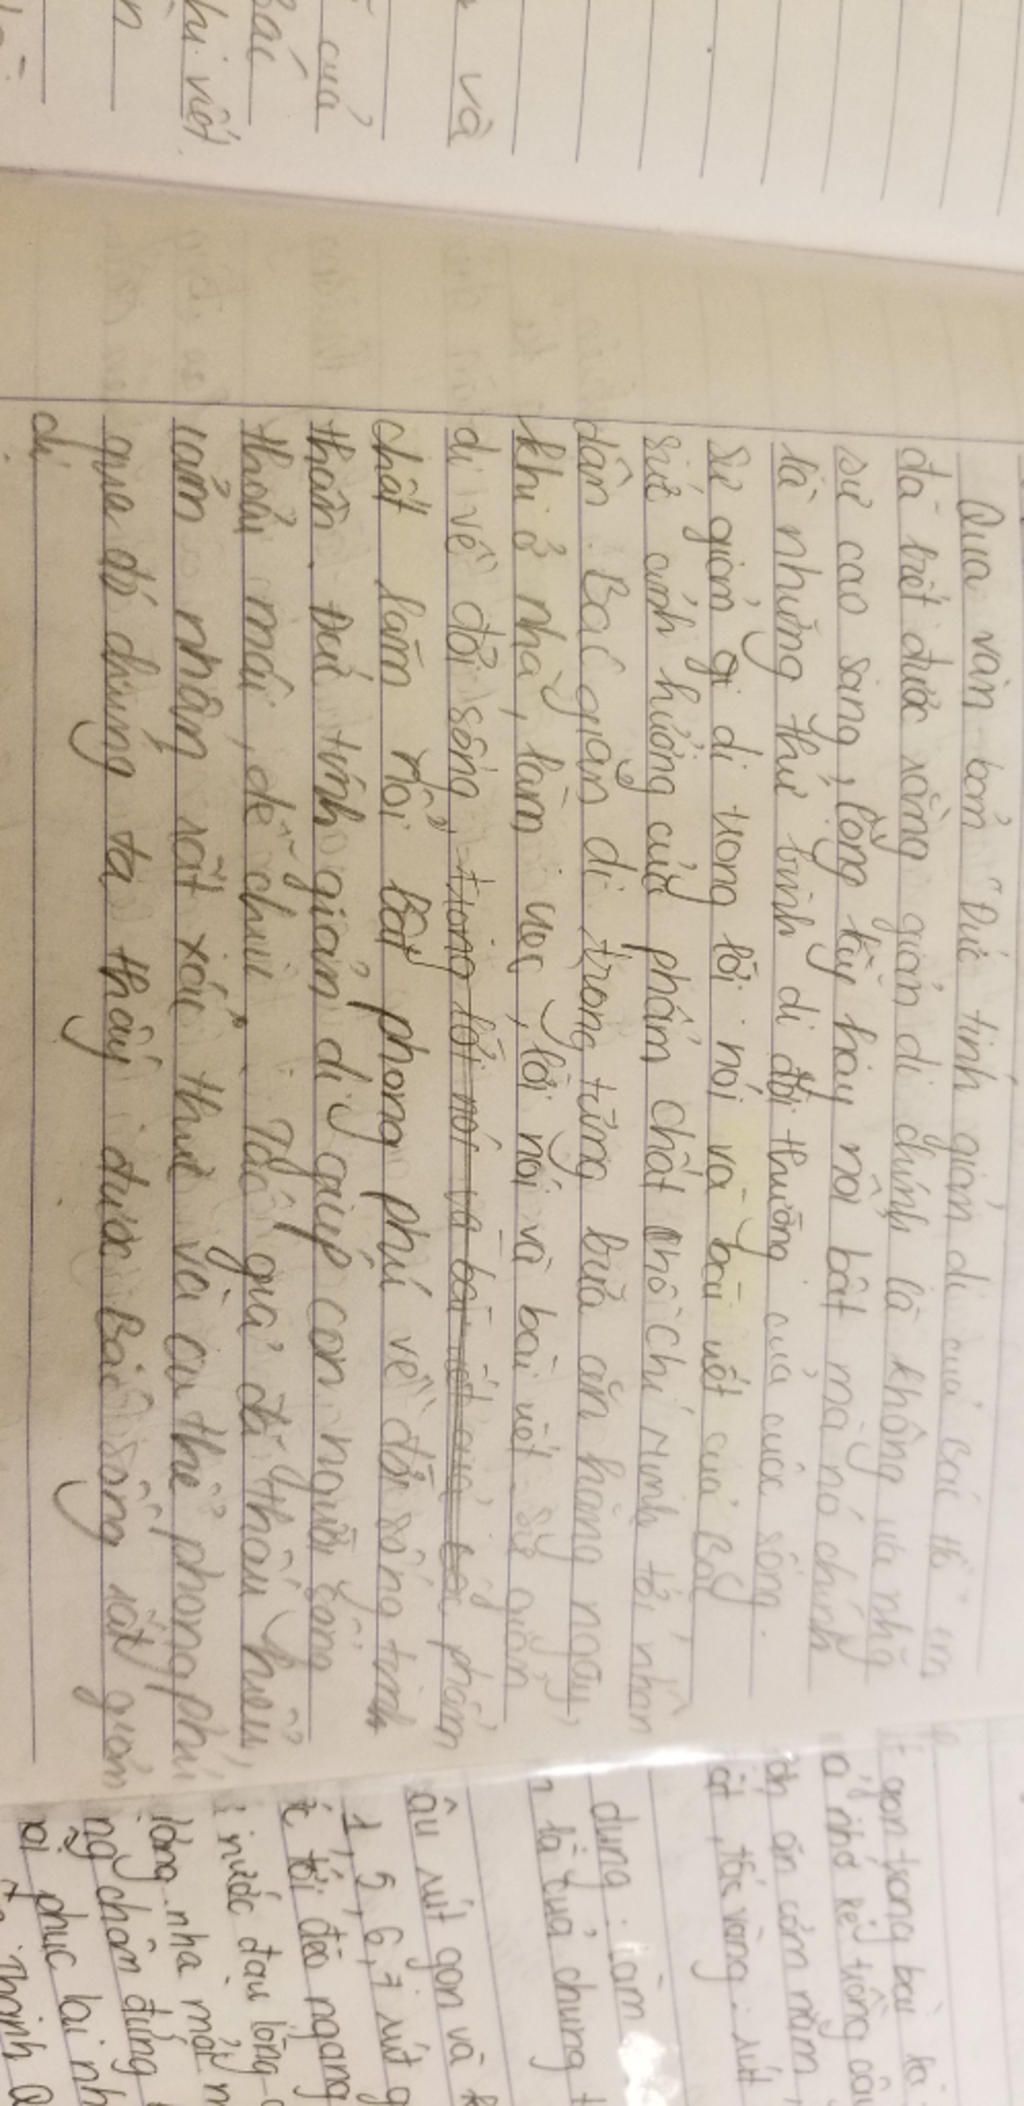 và
của
Bác
hi viết
n
Qua văn bản "Đức tính giản dị của Bác Hồ" em
đã biết được rằng giản dị chính là không
sự cao sang, lộng lẫy hay nổi bật mà nó chính
là những thứ bình dị đời thường của cuộc sống.
Sự giản dị trong lời nói và bài viết của Bác
sức ảnh hưởng của phẩm chất Hồ Chí Minh tới nhân
dân. Bác giản dị trong từng bữa ăn hàng ngày,
khi ở nhà, làm việc, lời nói và bài viết. Sự giản
dị về đời sống, trong lời nói và bài viết của Bác phẩm
chất làm nổi bật phong phú về đời sống tinh
thần. Đức tính giản dị giúp con người sống
thoải mái, dễ chịu. Tác giả đã thấu hiểu,
cảm nhận rất xác thực và cụ thể phong phú,
qua đó chúng ta thấy được Bác sống rất giản
dị.
gọn trong bài
nhớ kẻ trồng cây
ăn cơm nằm
tấc vàng: rút
dung: làm
là của chung
câu rút gọn và
1, 5, 6, 7 rút g
tới đèo ngang
nước đau lòng
lòng nhà
ng chân đứng
phục lại nh